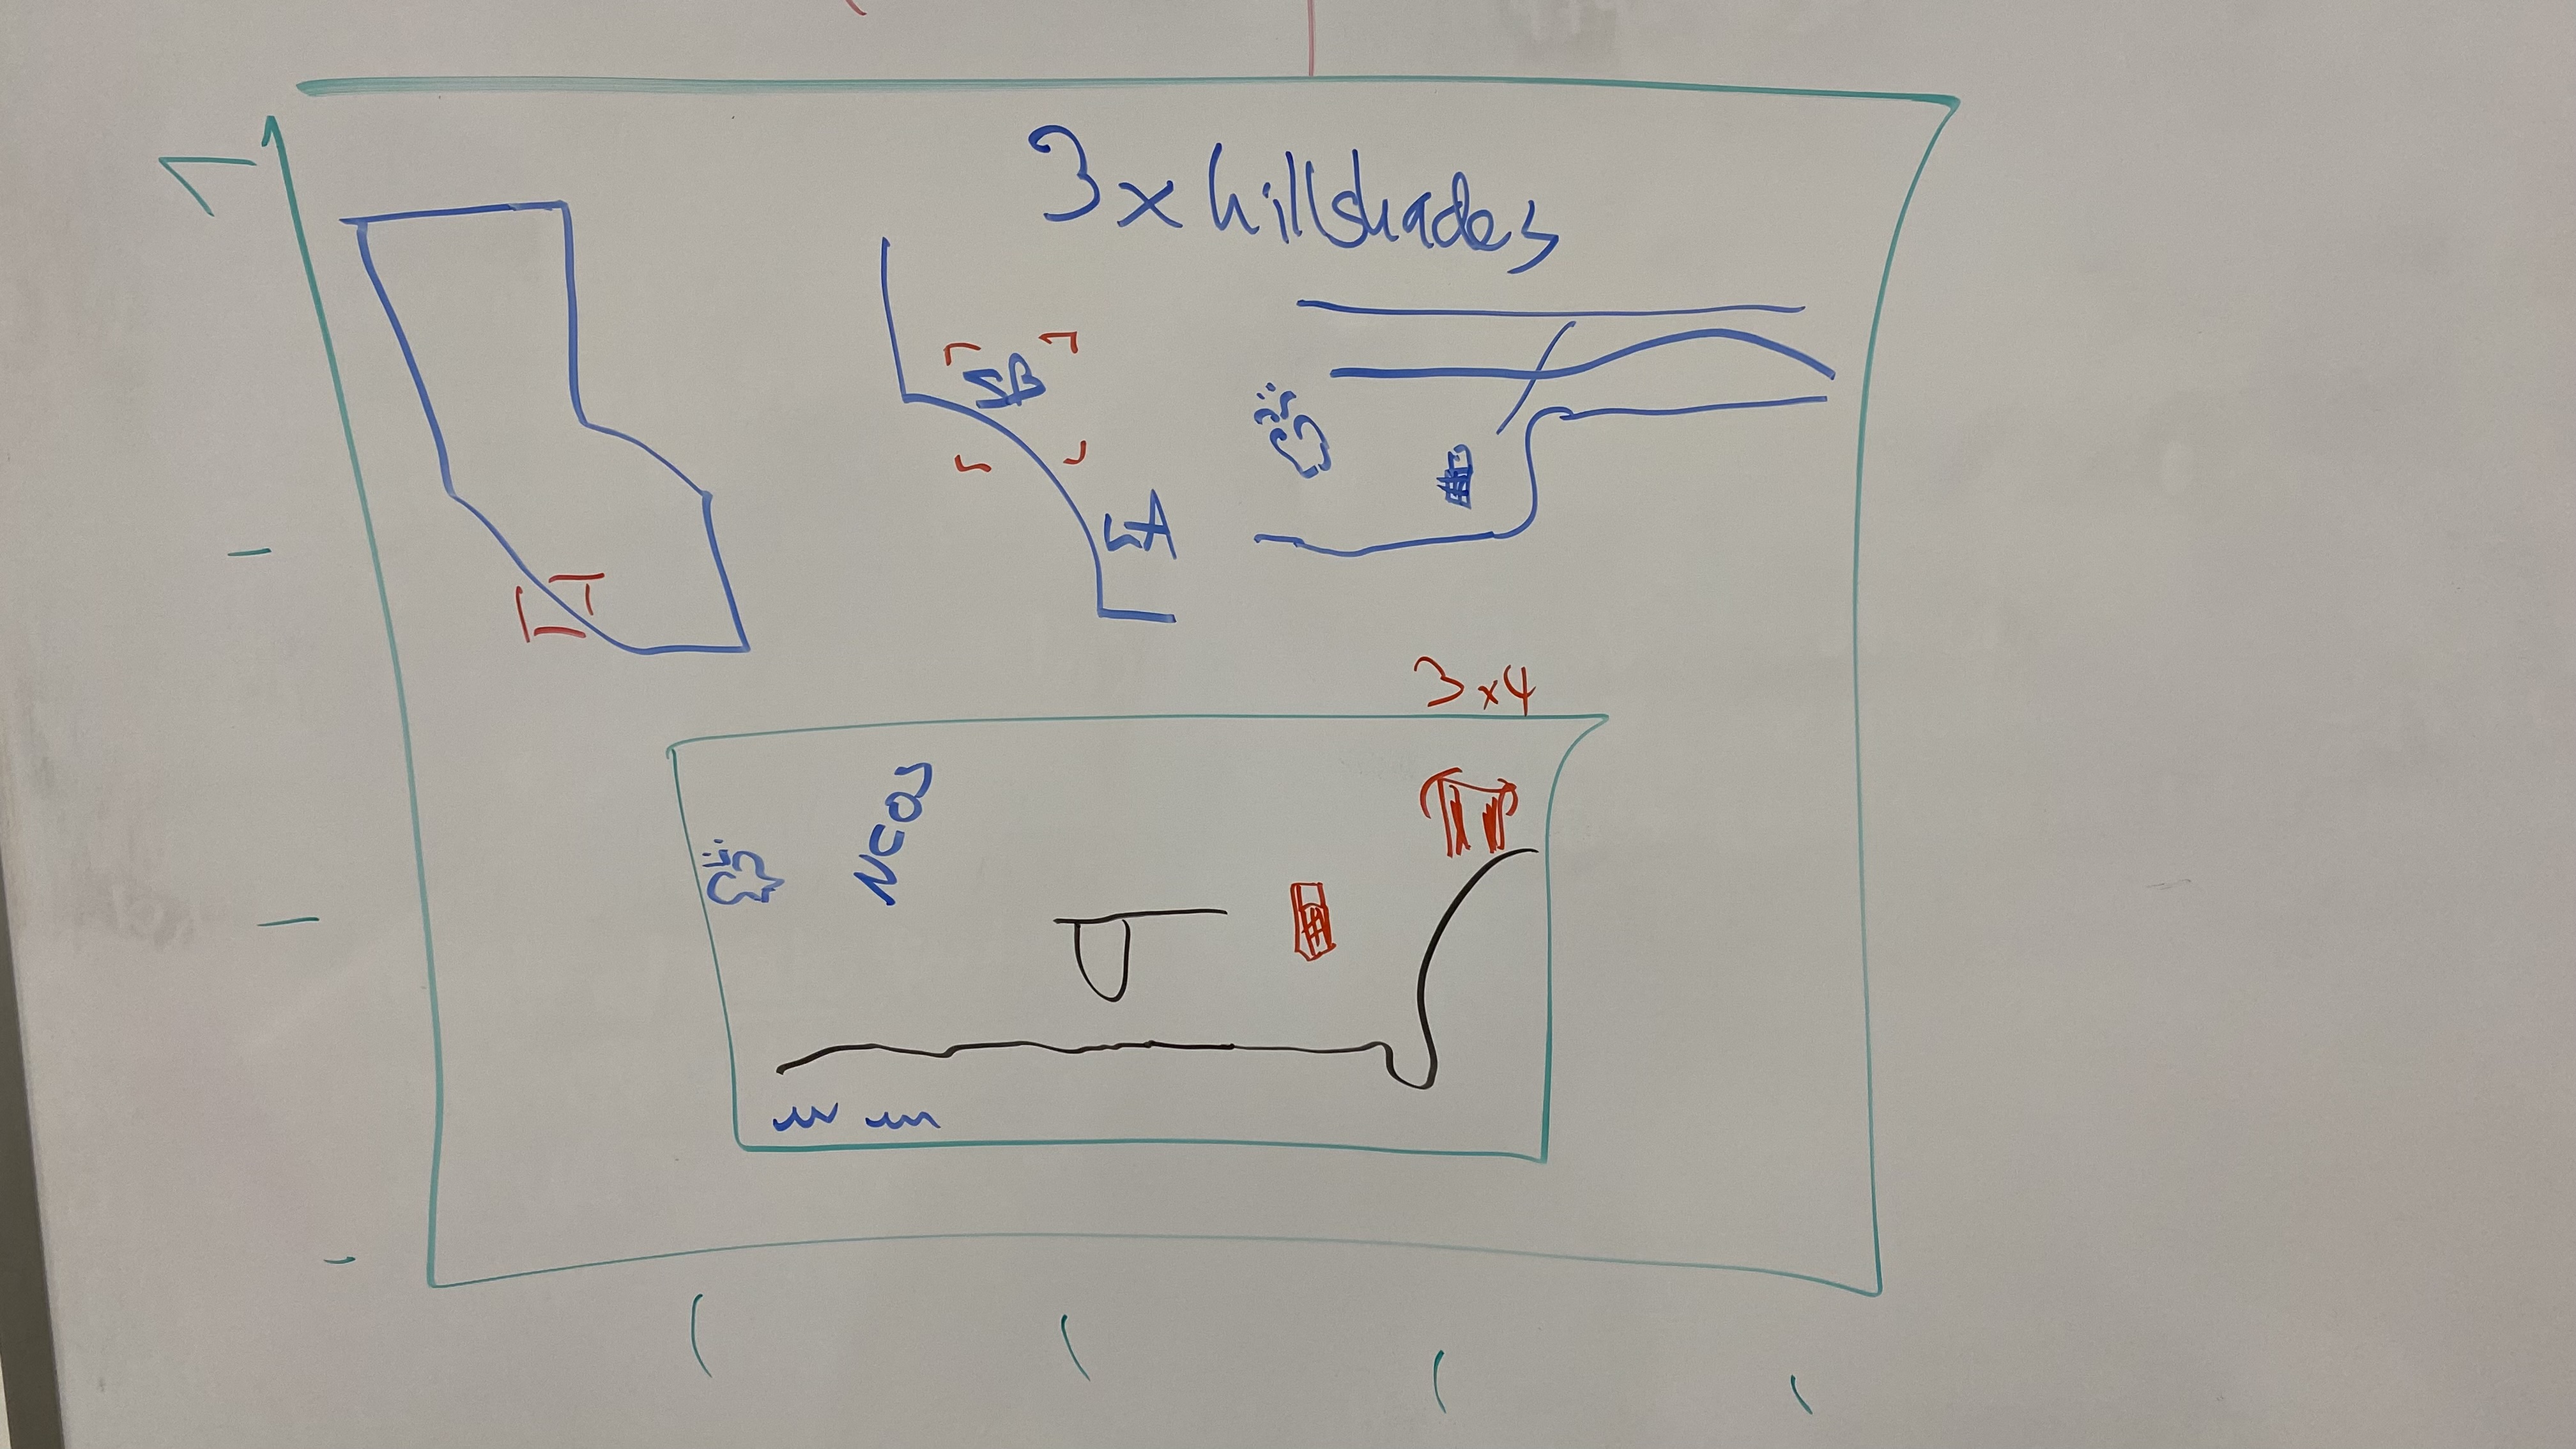 3x hillshades
SB
LA
3x4
NEOS